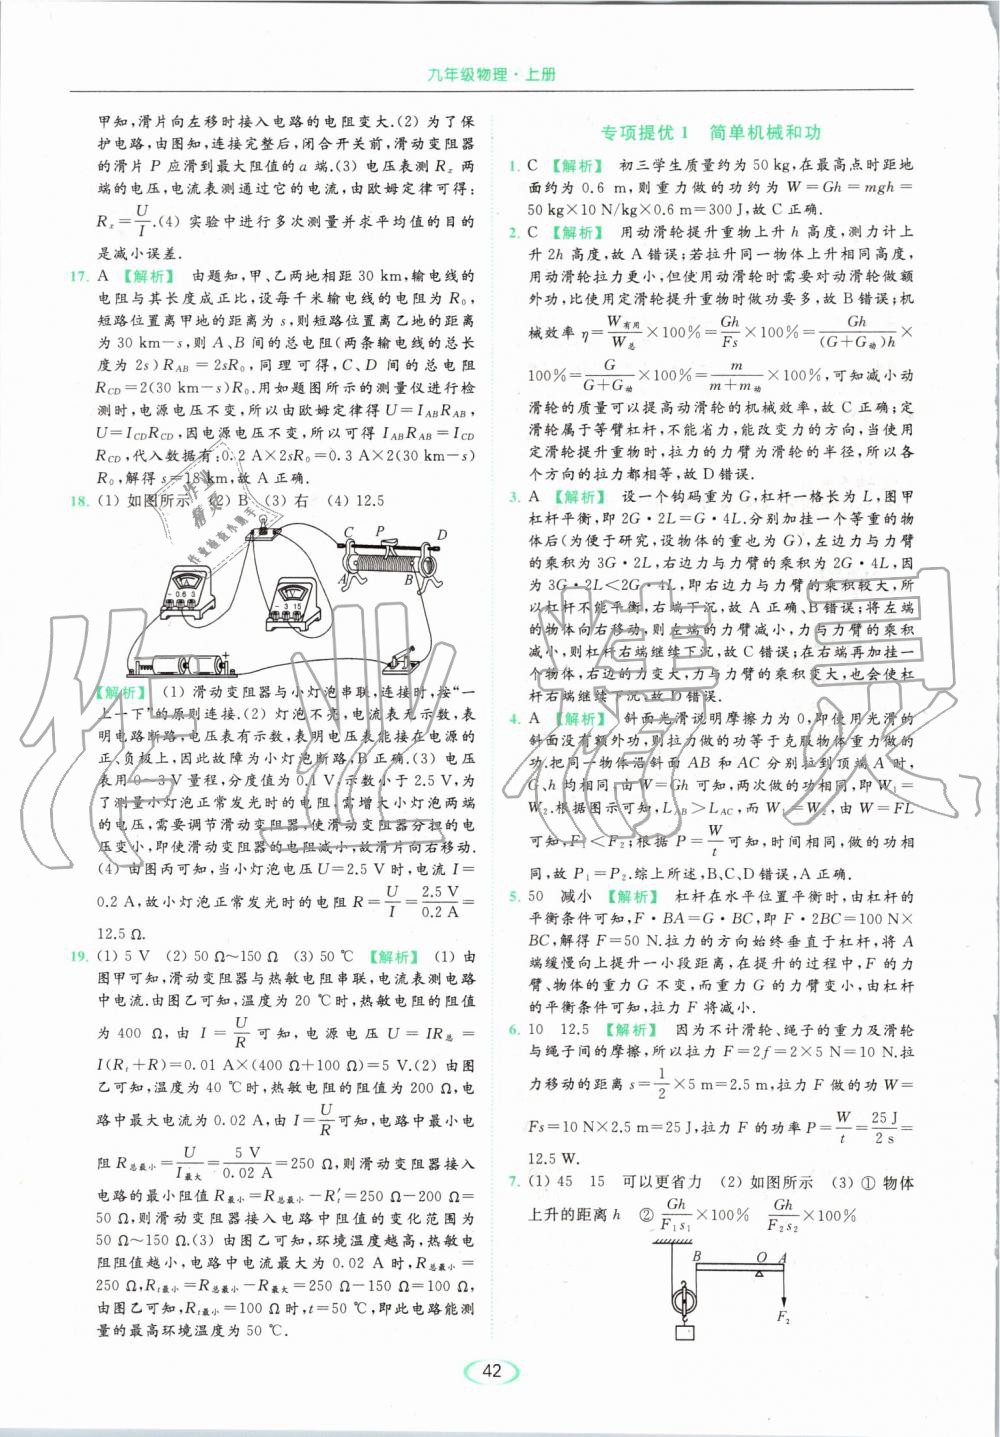 九年级物理·上册
甲知,滑片向左移时接入电路的电阻变大.(2) 为了保
护电路,由图知,连接完整后,闭合开关前,滑动变阻器
的滑片 P 应滑到最大阻值的 a 端.(3) 电压表测 Rₓ 两
端的电压,电流表测通过它的电流,由欧姆定律可得:
Rₓ=U/I.(4) 实验中进行多次测量并求平均值的目的
是减小误差.
17. A 【解析】 由题知,甲、乙两地相距 30 km,输电线的
电阻与其长度成正比,设每千米输电线的电阻为 R₀,
短路位置离甲地的距离为 s,则短路位置离乙地的距离
为 30 km−s,则 A、B 间的总电阻(两条输电线的总长
度为 2s)R_AB=2sR₀,同理可得,C、D 间的总电阻
R_CD=2(30 km−s)R₀.用如题图所示的测量仪进行检
测时,电源电压不变,所以由欧姆定律得 U=I_AB R_AB,
U=I_CD R_CD,因电源电压不变,所以可得 I_AB R_AB=I_CD
R_CD,代入数据有:0.2 A×2sR₀=0.3 A×2(30 km−s)
R₀,解得 s=18 km,故 A 正确.
18. (1) 如图所示 (2) B (3) 右 (4) 12.5
C P D
A B
A
− 0.6 3
V
− 3 15
− +
【解析】 (1) 滑动变阻器与小灯泡串联,连接时,按“一
上一下”的原则连接.(2) 灯泡不亮,电流表无示数,表
明电路断路,电压表有示数,表明电压表能接在电源的
正、负极上,因此故障为小灯泡断路,B正确.(3) 电压
表用 0~3 V 量程,分度值为 0.1 V,示数小于 2.5 V,为
了测量小灯泡正常发光时的电阻,需增大小灯泡两端
的电压,需要调节滑动变阻器,使滑动变阻器分担的电
压变小,即使滑动变阻器的电阻减小,故滑片向右移动.
(4) 由图丙可知,当小灯泡电压 U=2.5 V 时,电流 I=
0.2 A,故小灯泡正常发光时的电阻 R=U/I=2.5 V/0.2 A=
12.5 Ω.
19. (1) 5 V (2) 50 Ω~150 Ω (3) 50 ℃ 【解析】 (1) 由
图甲可知,滑动变阻器与热敏电阻串联,电流表测电路
中电流.由图乙可知,温度为 20 ℃时,热敏电阻的阻值
为 400 Ω,由 I=U/R 可知,电源电压 U=IR总=
I(Rₜ+R)=0.01 A×(400 Ω+100 Ω)=5 V.(2) 由图
乙可知,温度为 40 ℃时,热敏电阻的阻值为 200 Ω,电
路中最大电流为 0.02 A,由 I=U/R 可知,电路中最小电
阻 R总最小=U/I最大=5 V/0.02 A=250 Ω,则滑动变阻器接入
电路的最小阻值 R最小=R总最小−Rₜ′=250 Ω−200 Ω=
50 Ω,则滑动变阻器接入电路中阻值的变化范围为
50 Ω~150 Ω.(3) 由图乙可知,环境温度越高,热敏电
阻阻值越小,电路中电流最大为 0.02 A 时,R总最小=
250 Ω,Rₜ最小=R总最小−R最大=250 Ω−150 Ω=100 Ω,
由图乙可知,Rₜ最小=100 Ω 时,t=50 ℃,即此电路能测
量的最高环境温度为 50 ℃.
专项提优 1 简单机械和功
1. C 【解析】 初三学生质量约为 50 kg,在最高点时距地
面约为 0.6 m,则重力做的功约为 W=Gh=mgh=
50 kg×10 N/kg×0.6 m=300 J,故 C 正确.
2. C 【解析】 用动滑轮提升重物上升 h 高度,测力计上
升 2h 高度,故 A 错误;若拉升同一物体上升相同高度,
用动滑轮拉力更小,但使用动滑轮时需要对动滑轮做额
外功,比使用定滑轮提升重物时做功要多,故 B 错误;机
械效率 η=W有用/W总×100%=Gh/Fs×100%=Gh/(G+G动)h×
100%=G/(G+G动)×100%=m/(m+m动)×100%,可知减小动
滑轮的质量可以提高动滑轮的机械效率,故 C 正确;定
滑轮属于等臂杠杆,不能省力,能改变力的方向,当使用
定滑轮提升重物时,拉力的力臂为滑轮的半径,所以各
个方向的拉力都相等,故 D 错误.
3. A 【解析】 设一个钩码重为 G,杠杆一格长为 L,图甲
杠杆平衡,即 2G·2L=G·4L.分别加挂一个等重的物
体后(为便于研究,设物体的重也为 G),左边力与力臂
的乘积为 3G·2L,右边力与力臂的乘积为 2G·4L,因
为 3G·2L<2G·4L,即右边力与力臂的乘积较大,所
以杠杆不能平衡,右端下沉,故 A 正确、B 错误;将左端
的物体向右移动,则左边的力臂减小,力与力臂的乘积
减小,则杠杆右端继续下沉,故 C 错误;在右端再加挂一
个物体,右边的力变大,力与力臂的乘积变大,也会使杠
杆右端继续下沉,故 D 错误.
4. A 【解析】 斜面光滑说明摩擦力为 0,即使用光滑的
斜面没有额外功,则拉力做的功等于克服物体重力做的
功.把同一物体沿斜面 AB 和 AC 分别拉到顶端 A 时,
G、h 均相同,由 W=Gh 可知,两次做的功相同,即 W₁=
W₂.根据图示可知,L_AB>L_AC,而 W₁=W₂,由 W=FL
可知,F₁<F₂;根据 P=W/t 可知,时间相同,做的功相
同,故 P₁=P₂.综上所述,B、C、D 错误,A 正确.
5. 50 减小 【解析】 杠杆在水平位置平衡时,由杠杆的
平衡条件可知,F·BA=G·BC,即 F·2BC=100 N×
BC,解得 F=50 N.拉力的方向始终垂直于杠杆,将 A
端缓慢向上提升一小段距离,在提升的过程中,F 的力
臂、物体的重力 G 不变,而重力 G 的力臂变小,由杠杆
的平衡条件可知,拉力 F 将减小.
6. 10 12.5 【解析】 因为不计滑轮、绳子的重力及滑轮
与绳子间的摩擦,所以拉力 F=2f=2×5 N=10 N.拉
力移动的距离 s=1/2×5 m=2.5 m,拉力 F 做的功 W=
Fs=10 N×2.5 m=25 J,拉力 F 的功率 P=W/t=25 J/2 s=
12.5 W.
7. (1) 45 15 可以更省力 (2) 如图所示 (3) ① 物体
上升的距离 h ② Gh/F₁s₁×100% Gh/F₂s₂×100%
B O A
F₂
42
作业精灵
作业精灵
作业检查小能手